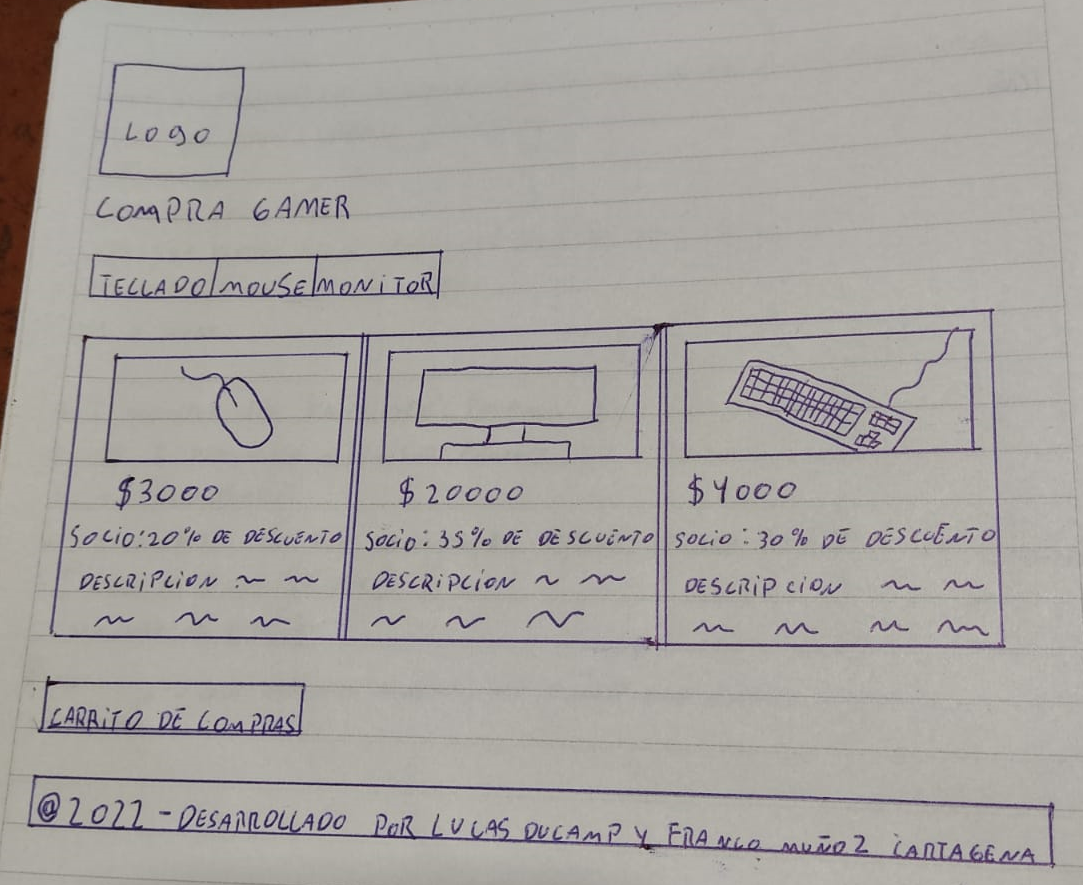 LOGO
COMPRA GAMER
TECLADO MOUSE MONITOR
$3000
SOCIO: 20% DE DESCUENTO
DESCRIPCION
$20000
SOCIO: 35% DE DESCUENTO
DESCRIPCION
$4000
SOCIO: 30% DE DESCUENTO
DESCRIPCION
CARRITO DE COMPRAS
@2022 - DESARROLLADO POR LUCAS DUCAMP Y FRANCO MUÑOZ CARTAGENA